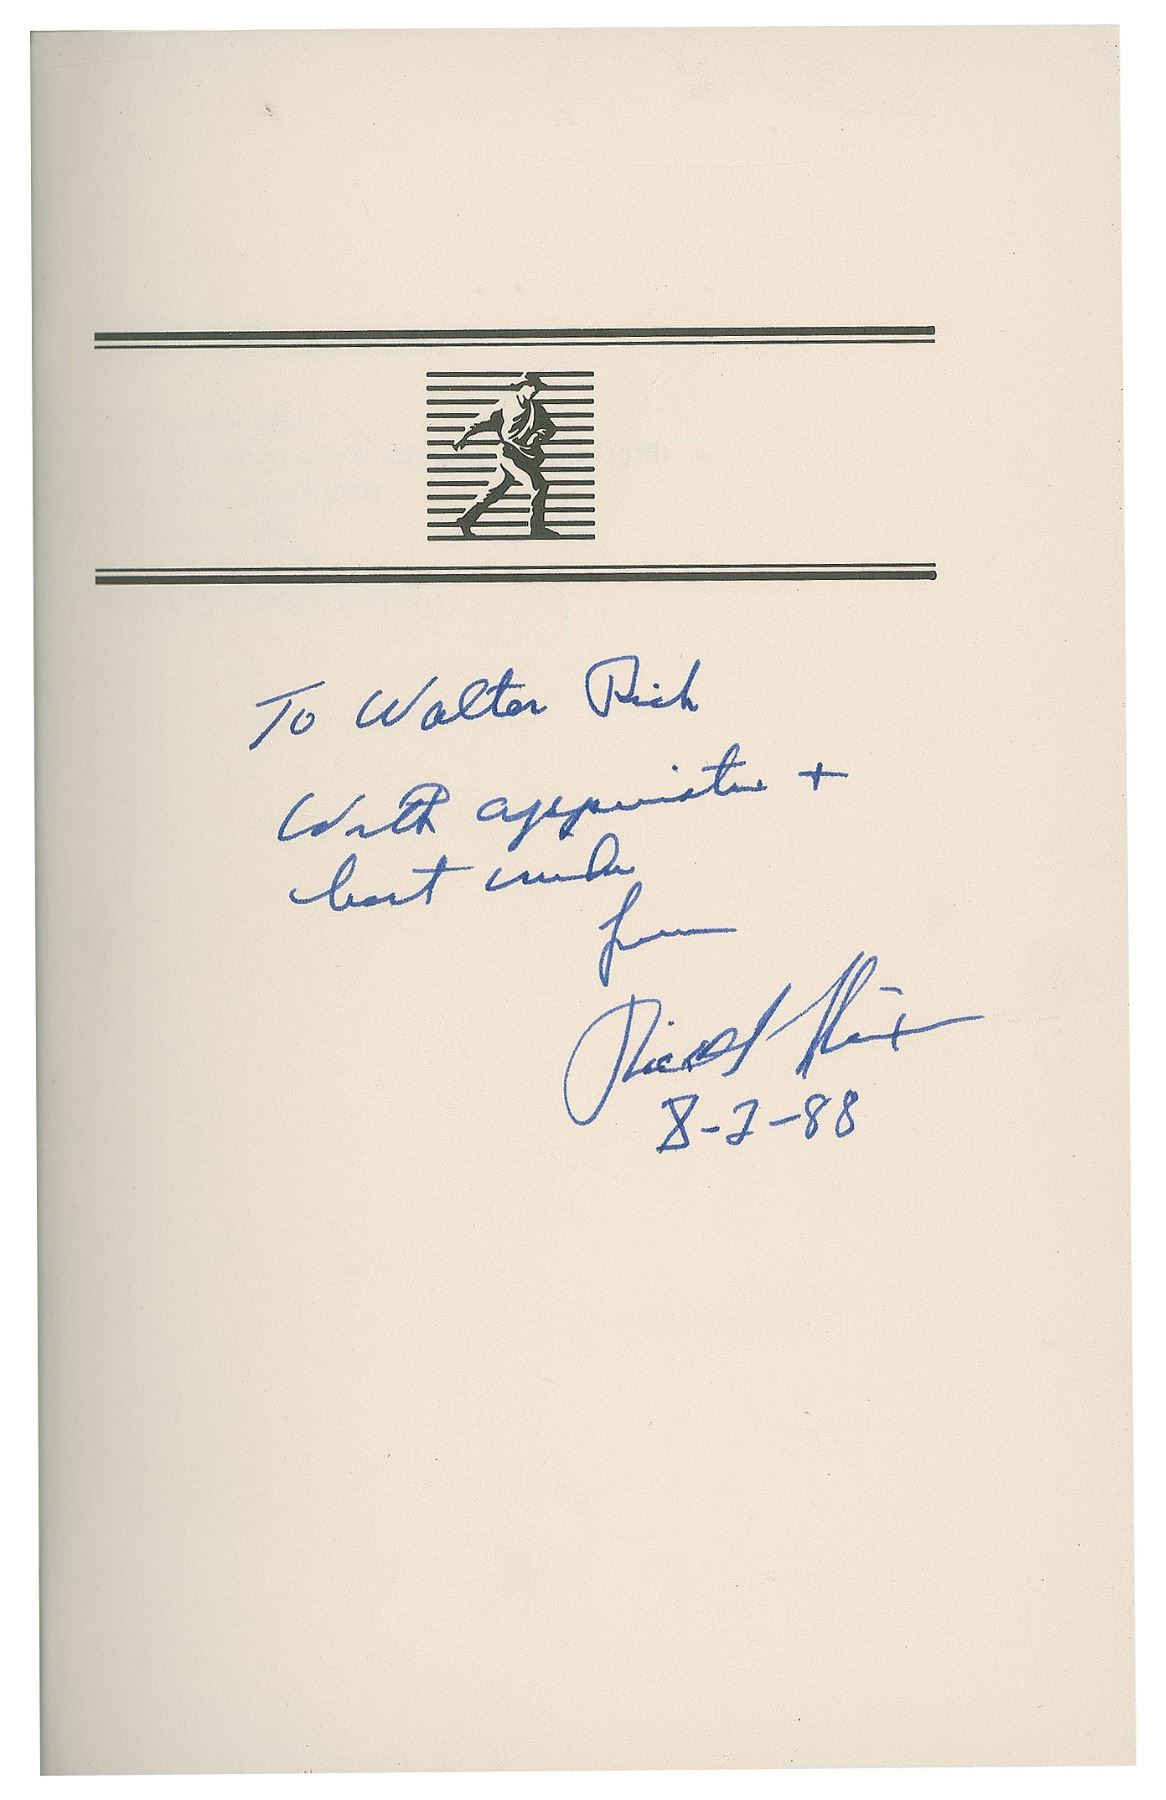 To Walter Rich
With appreciation +
best wishes
from
Richard Nixon
8-2-88